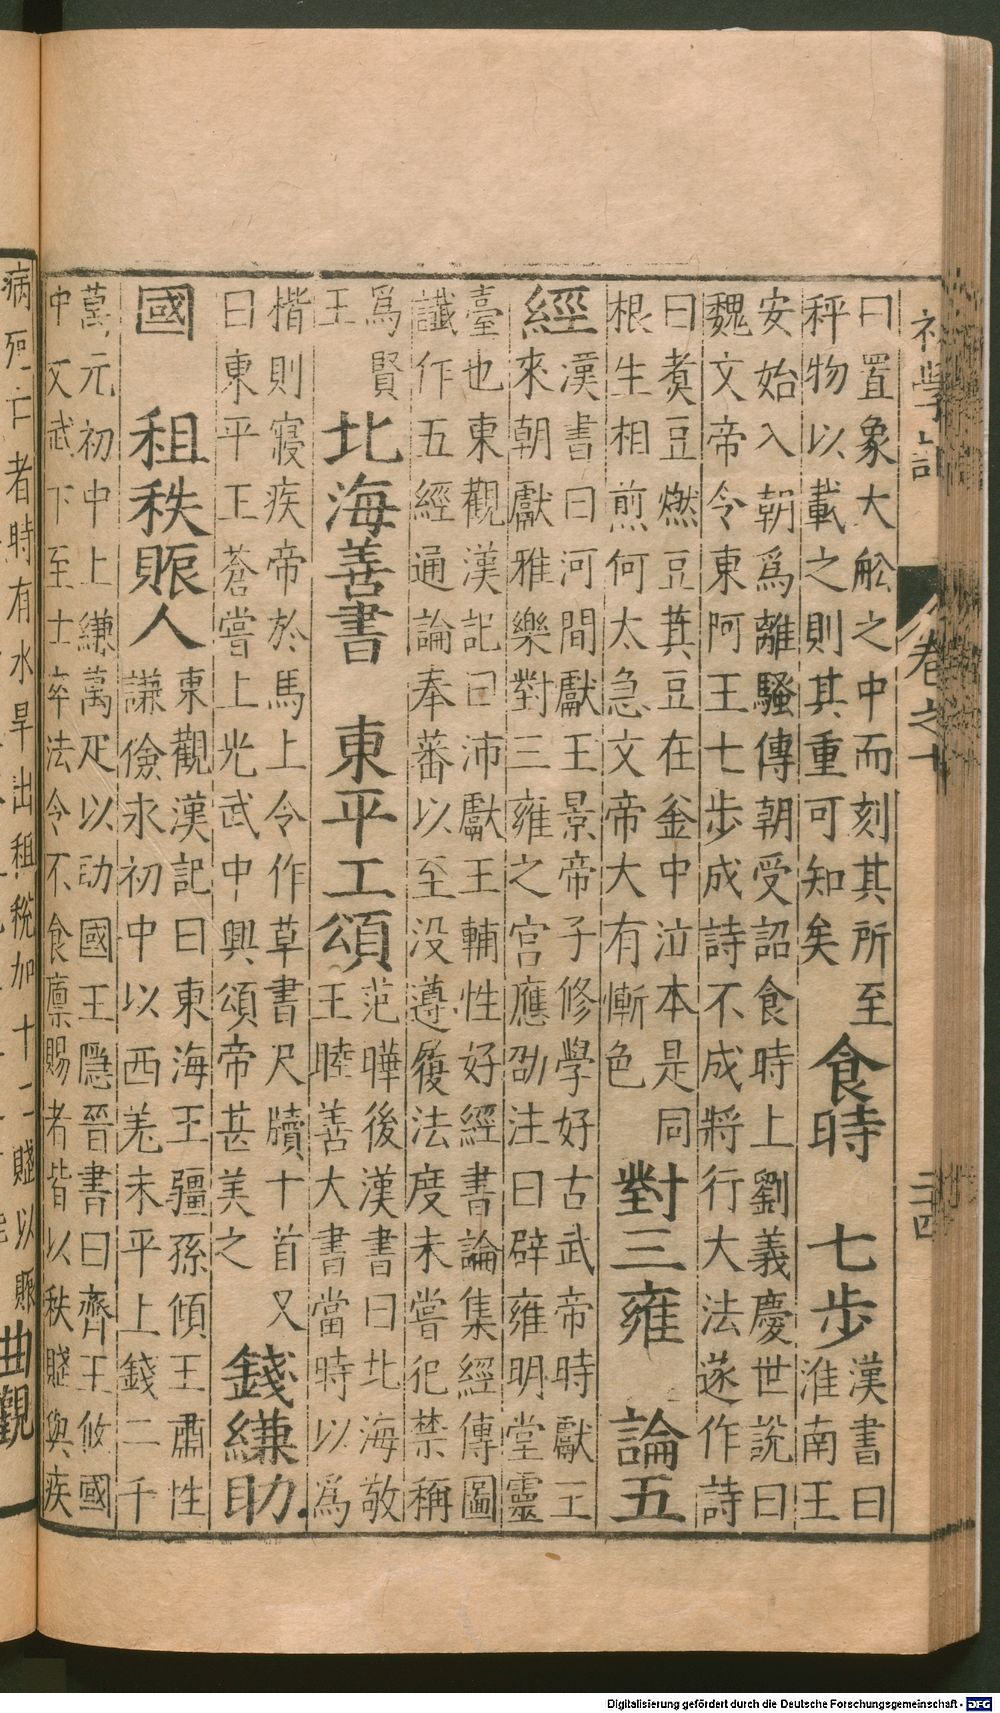 初學記 卷之十 二四
曰置象大舩之中而刻其所至
秤物以載之則其重可知矣
食時 七步
漢書曰
淮南王
安始入朝爲離騷傳朝受詔食時上劉義慶世說曰
魏文帝令東阿王七步成詩不成將行大法遂作詩
曰煮豆燃豆萁豆在釜中泣本是同
根生相煎何太急文帝大有慚色
對三雍 論五
經
漢書曰河間獻王景帝子修學好古武帝時獻王
來朝獻雅樂對三雍之宮應劭注曰辟雍明堂靈
臺也東觀漢記曰沛獻王輔性好經書論集經傳圖
讖作五經通論奉蕃以至没遵履法度未嘗犯禁稱
爲賢
王
北海善書 東平工頌
范曄後漢書曰北海敬
王睦善大書當時以爲
楷則寢疾帝於馬上令作草書尺牘十首又
曰東平王蒼嘗上光武中興頌帝甚美之
錢縑助
國 租秩賑人
東觀漢記曰東海王彊孫傾王肅性
謙儉永初中以西羌未平上錢二千
萬元初中上縑萬疋以助國王隱晉書曰齊王攸國
中文武下至士卒法令不食廪賜者皆以秩賤與疾
病死亡者時有水旱出租稅加十二賤以賑
曲觀
Digitalisierung gefördert durch die Deutsche Forschungsgemeinschaft - DFG